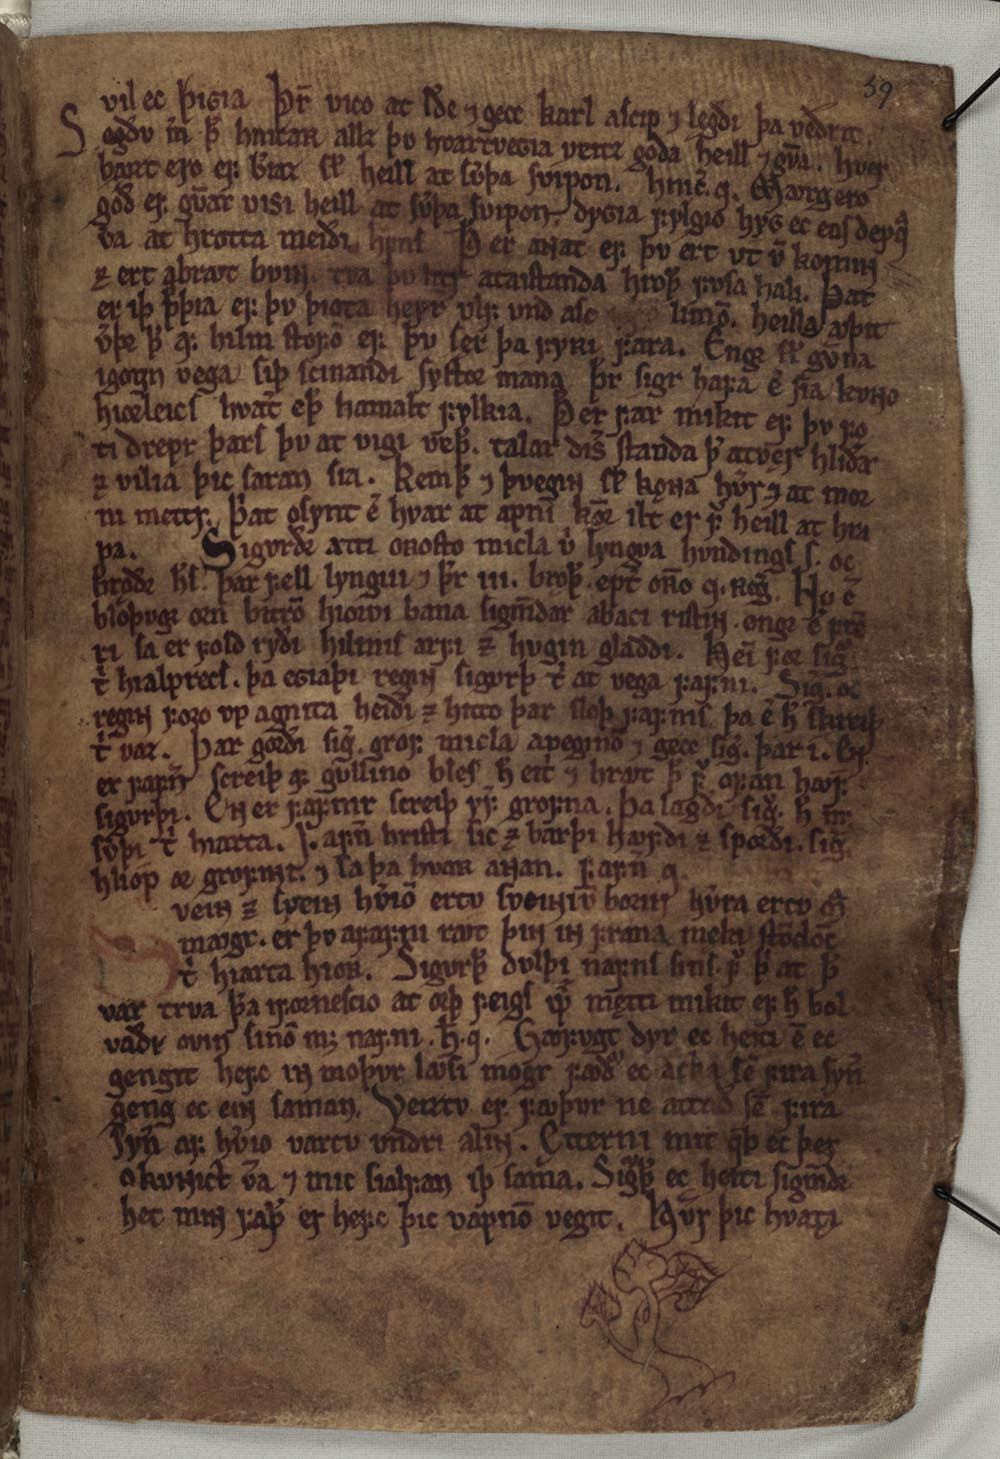 59
vil ec þigia Þr̄ vico at lde ⁊ gecc karl ascip ⁊ legði þa veðrit
S egðv m̄ þ̄ hnicarr allz þv hvartvegia veitz goða heill ⁊ gv̄a. hver
bazt ero ef b̄iaz sk̄ heill at sv̄þa svipon. hnic̄. q. Margero
goð ef gv̄ar vissi heill at sv̄þa svipon dygia fylgio hyg ec ens depq̄
v̄a at hrotta meiði hrafns Þ er anat ef þv ert vt v̄ kominn
⁊ ert abrꜹt bvinn. tva þv litr ataistanda hroþ fvsa hali. Þat
er iþ þþia ef þv þiota heyr vlf und asc limō. heilla ꜹþit
v̄þr þ̄ af hilm stofō ef þv ser þa fyrri fara. Engr sk̄ gv̄na
igogn vega siþ scinandi systor mana þr̄ sigr hafa ē sia kvno
hiorleics hvat eþ hamalt fylkia. Þ er far mikit ef þv fo
ti drepr þars þv at vigi veþ. talar disir standa þ̄ atvēr hliðar
⁊ vilia þic saran sia. Kemþ̄ ⁊ þvegin sk̄ kona hv̄r ⁊ at mor
ni mettr. þat osynt ē hvar at apni kōr ilt er f̄ heill at hra
pa. Sigvrðr atti orosto micla v̄ lyngva hvndings s. oc
brœðr h̄s. þar fell lyngui ⁊ þr̄ iii. broþ. ept̄ oro q. reg̅. Nv ē
bloþvgr orn bitrō hiorvi bana sigmvndar abaci ristin ongr ē frē
ri sa er fold ryði hilmis arfi ⁊ hugin gladdi. Heī for sig̅
t̄ hialprecs. þa egiaþi reginn sigurþ t̄ at vega fafni. Sig̅. oc
reginn foro vp agnita heiði ⁊ hitto þar sloþ fafnis þa ē h̄ screiþ
t̄ vaz. Þar gorði sig̅. grof micla aveginō ⁊ gecc sig̅. þar i. En
er fafn̄ screiþ af gullino bles h̄ eitri ⁊ hrꜹt þ̄ f̄ ofan hꜹf.
sigvrþi. En er fafnir screiþ yf̄ grofna. þa lagði sig̅. h̄ m;
sv̄þi t̄ hiarta. Fafn̄ hristi sic ⁊ barþi hꜹfdi ⁊ sporði. sig̅.
hliop or grofinni. ⁊ sa þa hvar annan. fafn̄ q.
vein ⁊ svein hv̄iō ertv sveini v̄ borin hv̄ra ertv m̄
mꜹgr. er þv afafni rꜹt þinn in frana meki stōdōc
t̄ hiarta hiorr. Sigurþ̄ dulþi nafns sins f̄ þ̄ at þ̄
var trva þ̄a ifornescio at orþ feigs m̄ mętti mikit ef h̄ bol
vaði ovin sinō m; nafni. h̄. q. Gꜹfugt dyr ec heiti ē ec
gengit hefc inn moþur lꜹsi mogr fꜹður ec acka sē fira syn̄
geng ec ein saman. Veiztv ef fꜹþur ne attað sē fira
syn̄ af hv̄io vartv undri alin. Etterni mit q̄þ ec þer
okunict v̄a ⁊ mic sialfan iþ sama. Sigurþ̄ ec heiti sigmundr
het minn faþ̄ er hefc þic vapnō vegit. Hv̄r þic hvatti